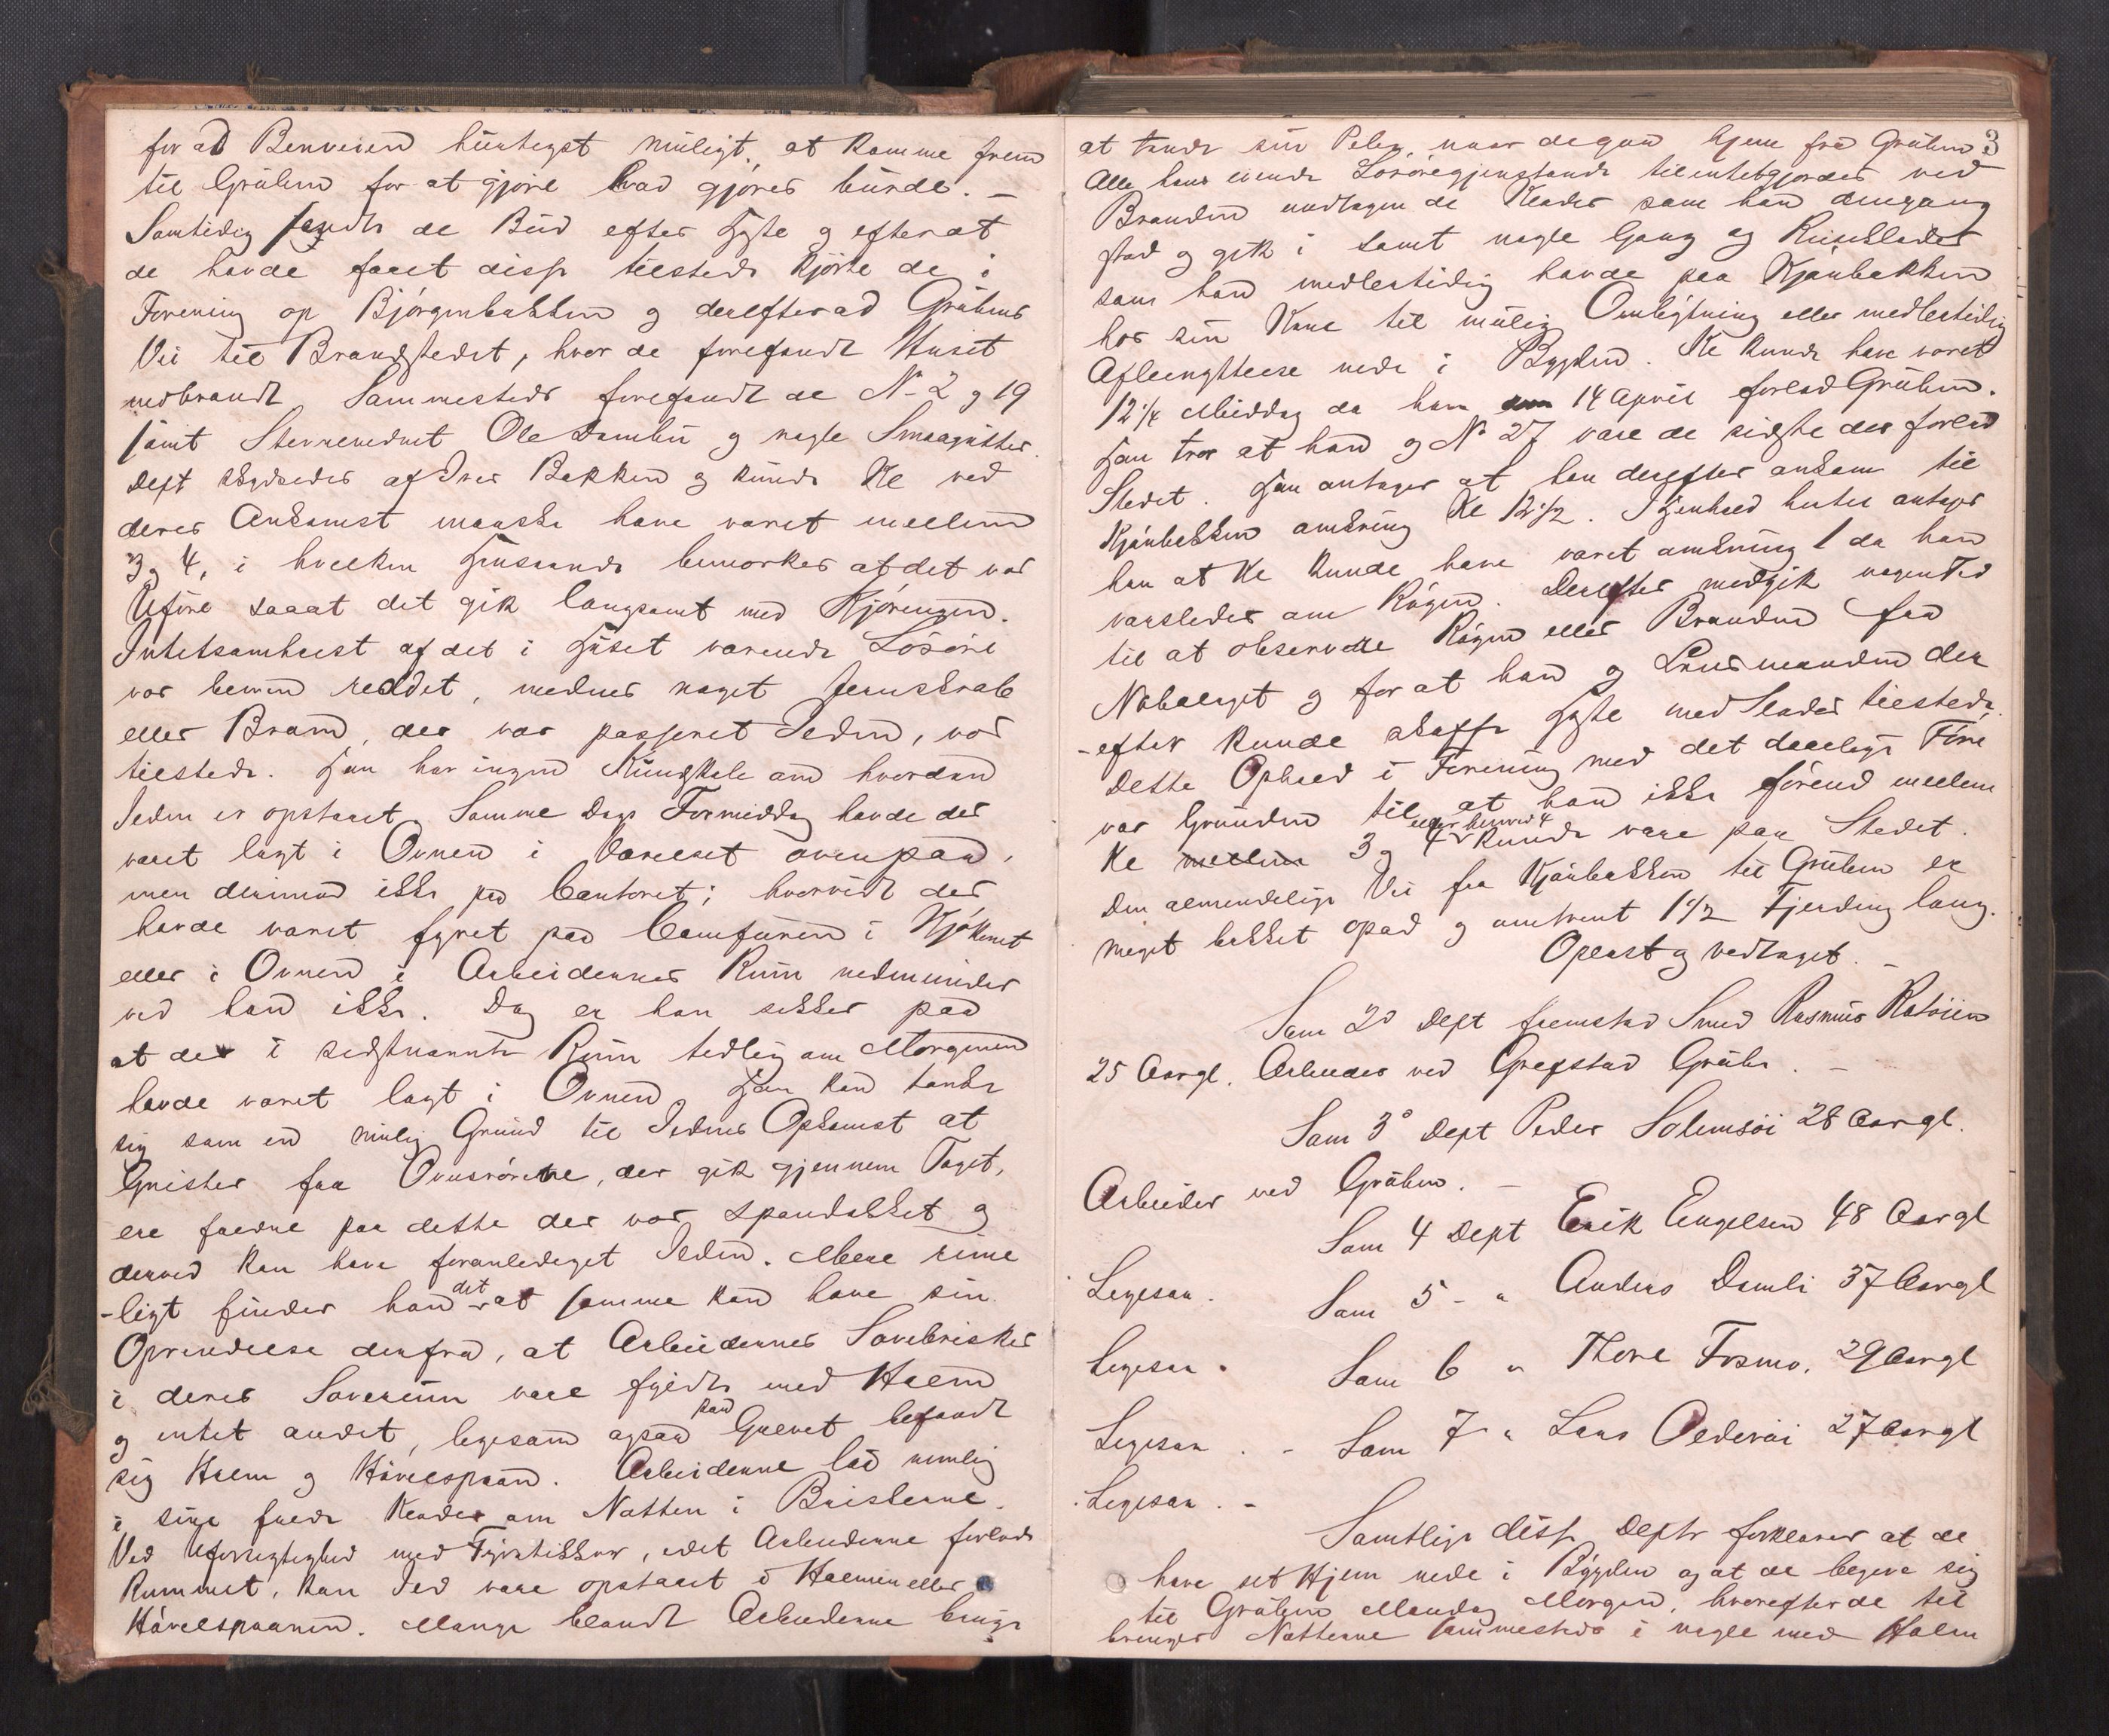 for ad Benveien hurtigst muligt, at komme frem
til Gruben for at gjøre hvad gjøres burde. –
Samtidig sendte de Bud efter Heste og efter at
de havde faaet disse tilstede kjørte de i
Forening op Bjørgenbakken og derefter ad Grubens
Vei til Brandstedet, hvor de forefandt Huset
nedbrandt Sammesteds forefandt de No 2 og 19
samt Stevnevidnet Ole Damli og nogle Smaagutter.
Dept skydsedes af Iver Bakken og kunde Kl ved
deres Ankomst maaske have været mellem
3 og 4, i hvilken Henseende bemærkes at det var
Uføre saaat det gik langsomt med Kjøringen.
Intetsomhelst af det i Huset værende Løsøre
var bleven reddet, medens noget Jernskrab
eller Bram, der var passeret Ilden, var
tilstede. Han har ingen Kundskab om hvordan
Ilden er opstaaet Samme Dags Formiddag havde der
været lagt i Ovnen i Værelset ovenpaa,
men derimod ikke paa Contoret; hvorvidt der
havde været fyret paa Comfuren i Kjøkenet
eller i Ovnen i Arbeidernes Rum nedenunder
ved han ikke. Dog er han sikker paa
at der i sidstnævnte Rum tidlig om Morgenen
havde været lagt i Ovnen Han kan tænke
sig som en mulig Grund til Ildens Opkomst at
Gnister fra Ovnsrørene, der gik gjennem Taget,
ere faldne paa dette der var spaandækket og
derved kan have foranlediget Ilden. Mere rime
-ligt finder han det at samme kan have sin
Oprindelse derfra, at Arbeidernes Sovebrisker
i deres Soverum vare fyldte med Halm
og intet andet, ligesom ogsaa paa Gulvet befandt
sig Halm og Høvelspaan. Arbeiderne laa nemlig
i sine fulde Klæder om Natten i Briskerne.
Ved Uforsigtighed med Fyrstikker, idet Arbeiderne forlode
Rummet, kan Ild være opstaaet i Halmen eller
Høvelspaanen. Mange blandt Arbeiderne bruge
3
at tænde sin Pibe, naar de gaa hjem fra Gruben
Alle hans eiende Løsøregjenstande tilintetgjordes ved
Branden undtagen de Klæder som han dengang
stod og gik i samt nogle Gang og Rundklæder
som han midlertidig havde paa Kjønbakken
hos sin Kone til mulig Ombytning eller midlertidig
Afbenyttelse nede i Bygden. Kl kunde have været
12 1/4 Middag da han 14 April forlod Gruben.
Han tror at han og No 27 vare de sidste der forlod
Stedet. Han antager at han derefter ankom til
Kjønbakken omkring Kl 12 1/2. I Henhold hertil antager
han at Kl kunde have været omkring 1 da han
varsledes om Røgen. Derefter medgik nogen Tid
til at observere Røgen eller Branden fra
Nabolaget og for at han og Lensmanden der
-efter kunde skaffe Heste med Slæder tilstede.
Dette Ophold i Forening med det daarlige Føre
var Grunden til at han ikke førend mellem
Kl mellem 3 og 4 eller henved 4 kunde være paa Stedet.
Den almindelige Vei fra Kjønbakken til Gruben er
meget bakket opad og omtrent 1 1/2 Fjerding lang.
Oplæst og vedtaget. –
Som 2o Dept fremstod Smed Rasmus Ratøien
25 Aargl. Arbeider ved Grefstad Grube. –
Som 3o Dept Peder Solemsøi 28 Aargl.
Arbeider ved Gruben. –
Som 4 Dept Erik Engelsen 48 Aargl
Ligesaa.
Som 5 – " Anders Damli 37 Aargl
Ligesaa.
Som 6 " Thore Fosmo. 29 Aargl
Ligesaa. –
Som 7 " Lars Oldervei 27 Aargl
Ligesaa. –
Samtlige disse Depte forklarer at de
have sit Hjem nede i Bygden og at de begive sig
til Gruben Mandag Morgen, hvorefter de til
bringer Nætterne sammesteds i nogle med Halm